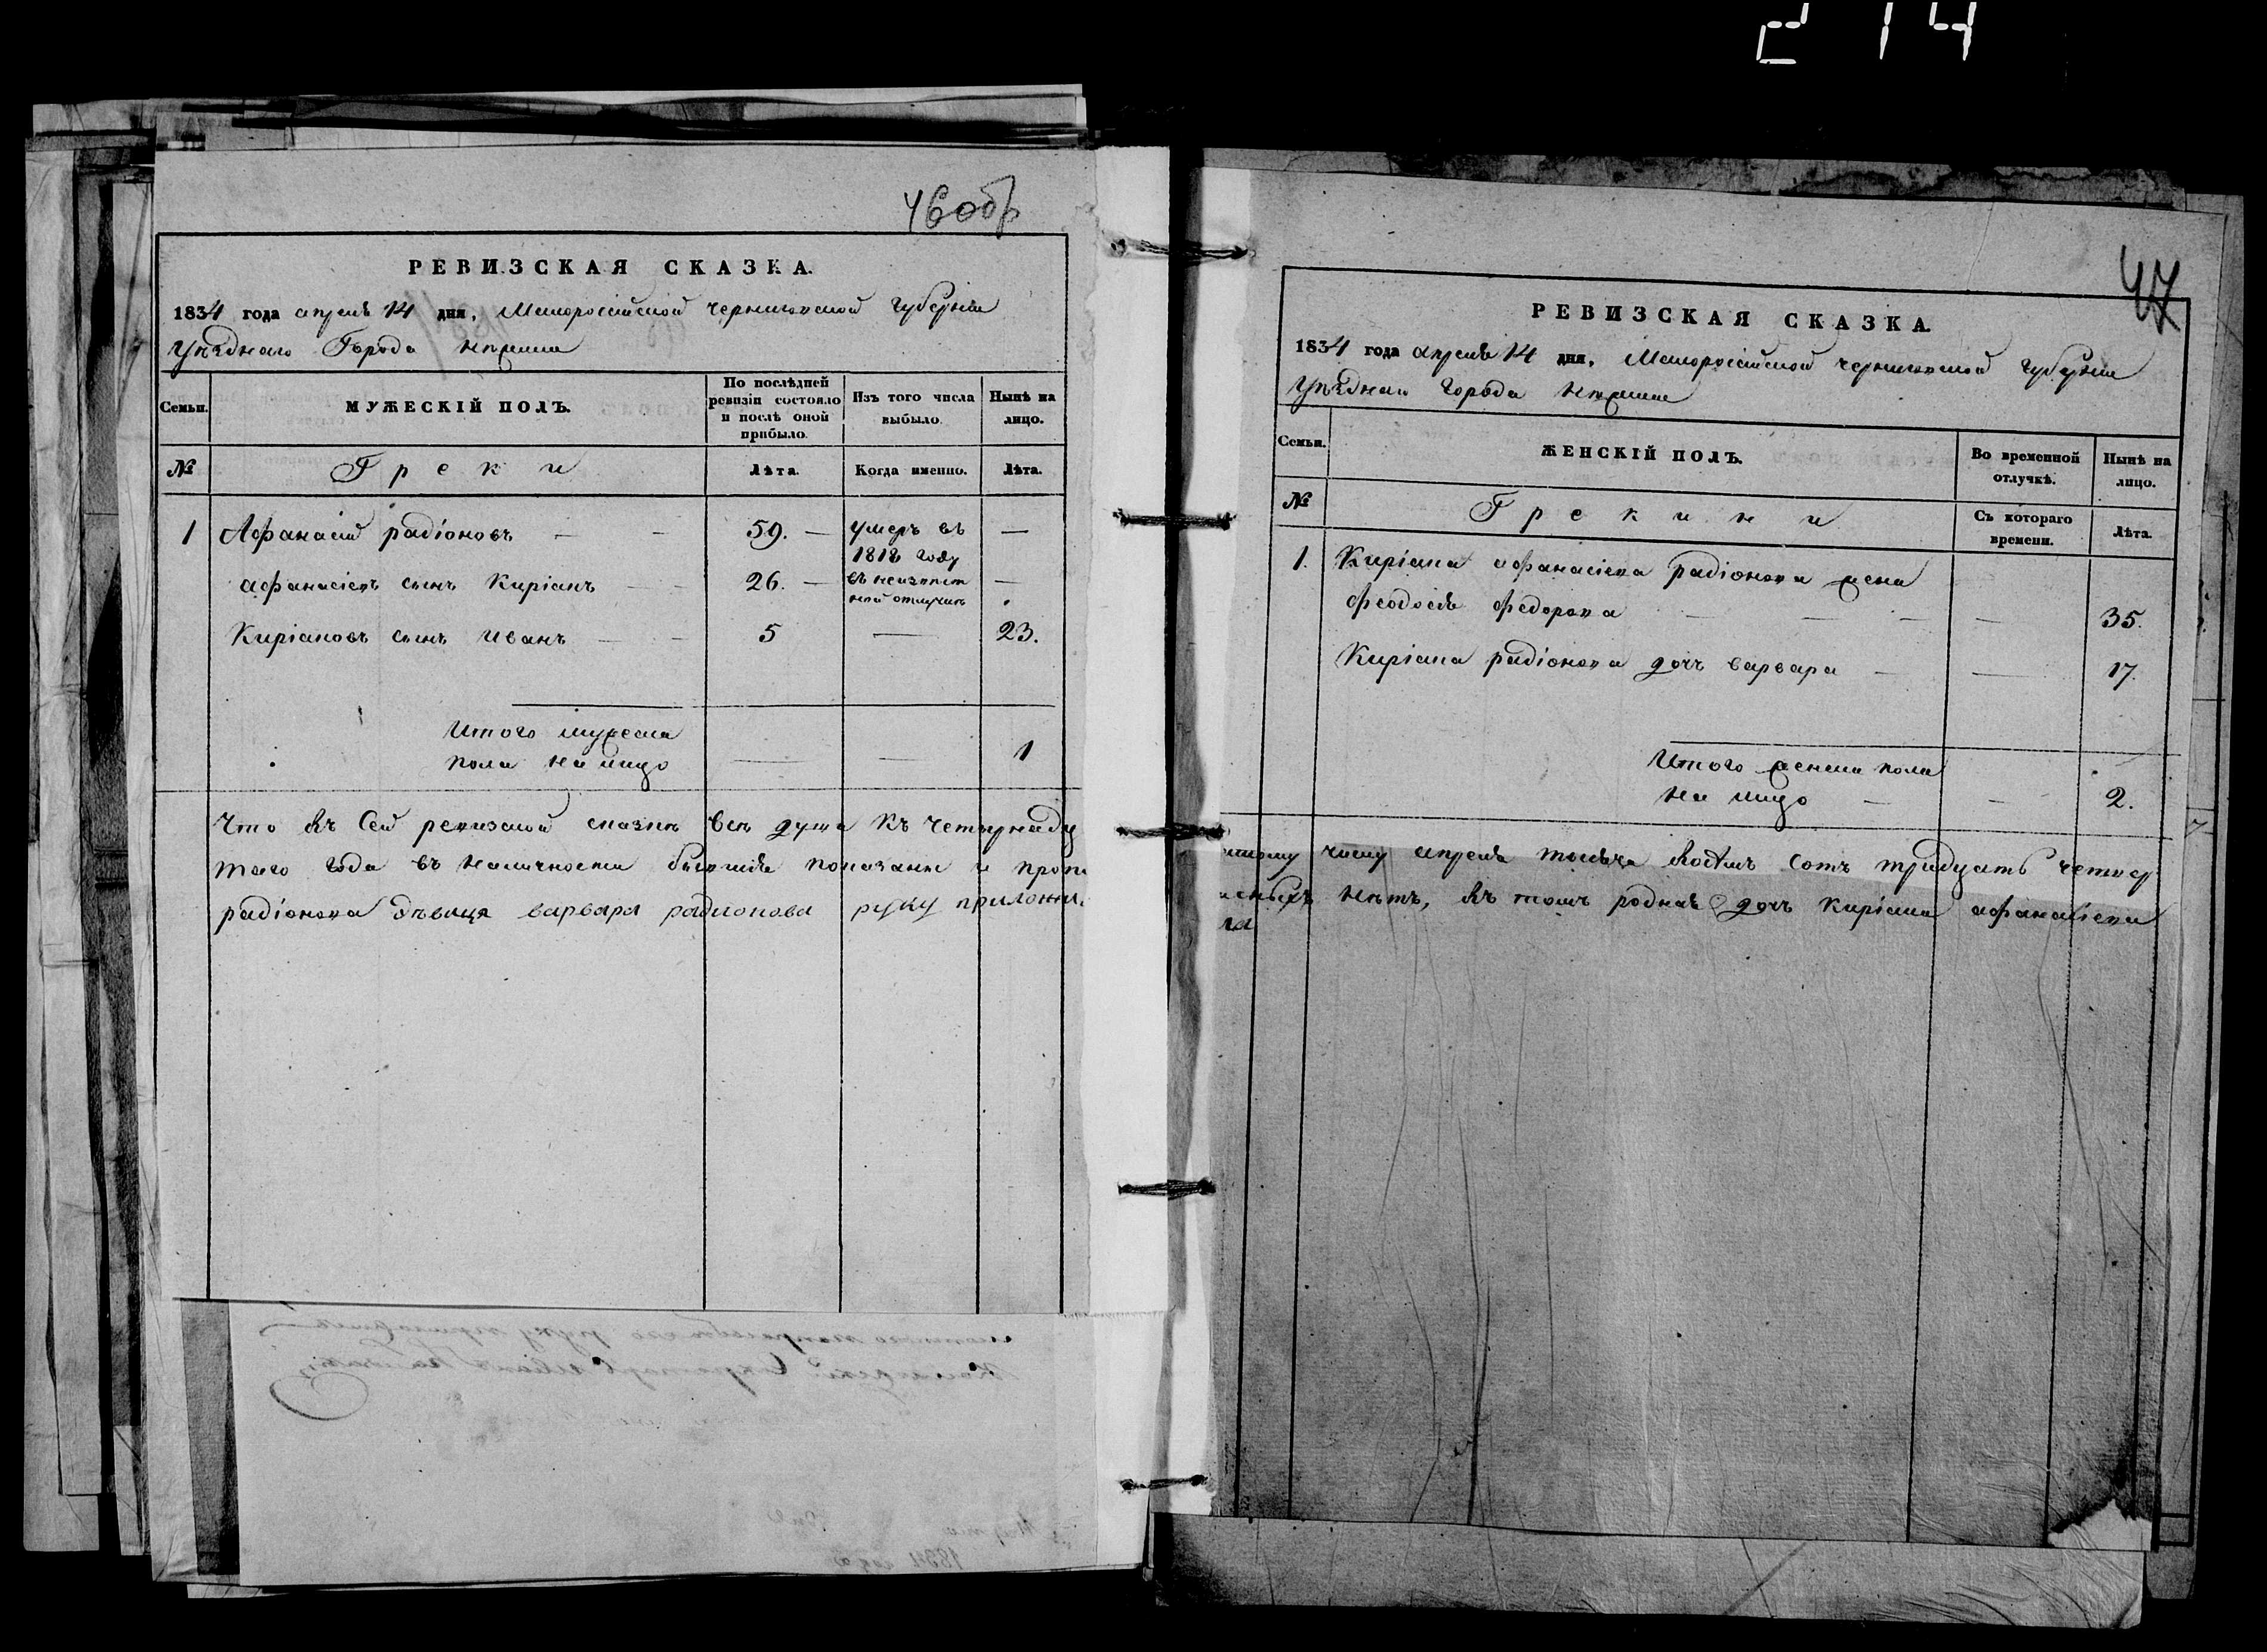 214
46 об
РЕВИЗСКАЯ СКАЗКА.
1834 года апреля 14 дня, Малороссійской черниговской Губерніи
Уѣзднаго Города нѣжина
Семьи.
МУЖЕСКІЙ ПОЛЪ.
По послѣдней ревизіи состояло и послѣ оной прибыло.
Изъ того числа выбыло.
Нынѣ на лицо.
№
Греки
Лѣта.
Когда именно.
Лѣта.
1 Афанасій радіоновъ — — 59. — умеръ въ 1818 году —
афанасіевъ сынъ Киріанъ — — 26. — въ неизвѣст ной отлучкѣ —
Киріановъ сынъ Иванъ — — 5 — 23.
Итого мужеска
пола на лицо — — 1
Что въ Сей ревизской сказкѣ всѣ души къ четырнадц
таго года въ наличности бывшія показаны и проп
радіонова дѣвица варвара радионова руку приложи
47
РЕВИЗСКАЯ СКАЗКА.
1834 года апреля 14 дня, Малороссійской черниговской Губерніи
Уѣзднаго города нѣжина
Семьи.
ЖЕНСКІЙ ПОЛЪ.
Во временной отлучкѣ.
Нынѣ на лицо.
№
Грекини
Съ котораго времени.
Лѣта.
1. Киріана афанасіева радіонова жена
феодосія федорова — — — — 35.
Киріана радіонова дочь варвара — — 17.
Итого женска пола
на лицо — — 2.
числу апреля тысяча восѣмъ сотъ тридцать четвер
нѣтъ, въ томъ родная дочь киріана афанасіева
ла